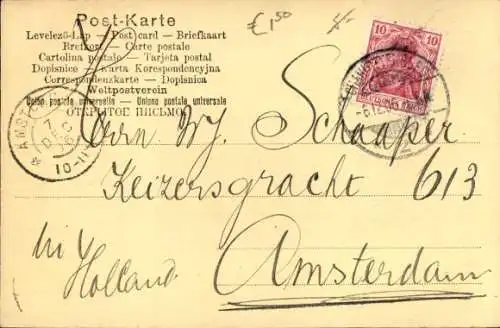 Post-Karte
€1,50
Levelező-Lap — Post card — Briefkaart
Brefkort — Carte postale
Cartolina postale — Tarjeta postal
Dopisnice — Karta Korespondencyjna
Correspondenzkarte — Dopisnica
Weltpostverein
Union postale universelle — Unione postale universale
ОТКРЫТОЕ ПИСЬМО
10 10
Herrn Wj. Schaaper
Keizersgracht 613
in Holland
Amsterdam